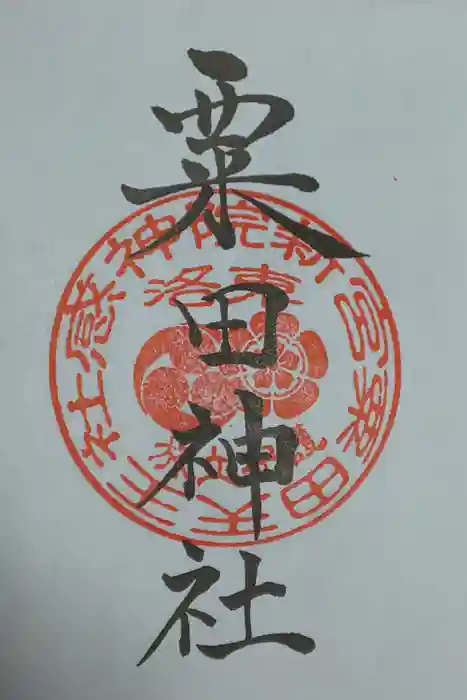 粟田神社
感神院新宮粟田天王社
洛東